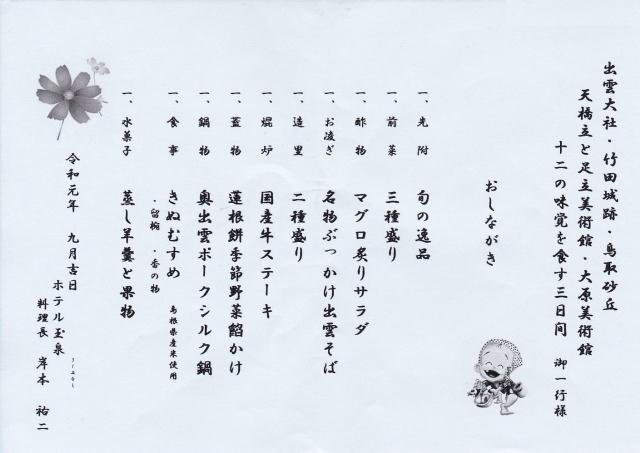 出雲大社・竹田城跡・鳥取砂丘
天橋立と足立美術館・大原美術館
十二の味覚を食す三日間 御一行様
おしながき
一、先附 旬の逸品
一、前菜 三種盛り
一、酢物 マグロ炙りサラダ
一、お凌ぎ 名物ぶっかけ出雲そば
一、造里 二種盛り
一、焜炉 国産牛ステーキ
一、蓋物 蓮根餅季節野菜餡かけ
一、鍋物 奥出雲ポークシルク鍋
一、食事 きぬむすめ 島根県産米使用
・留椀 ・香の物
一、水菓子 蒸し羊羹と果物
令和元年 九月吉日
ホテル玉泉
料理長 岸本 祐二